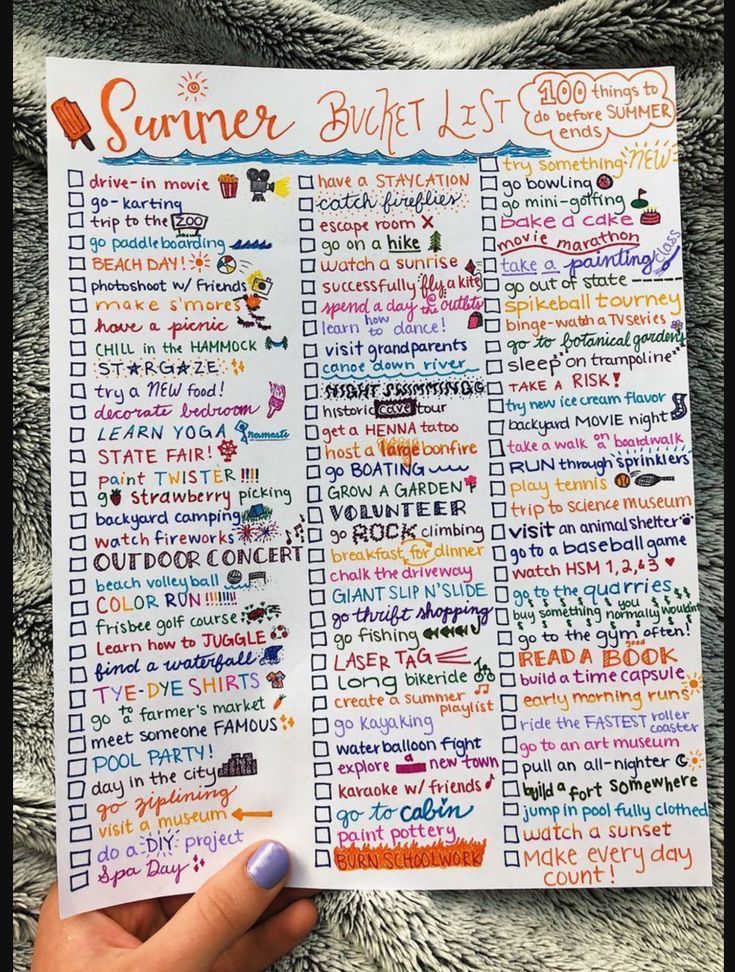 Summer BUCKET LIST
100 things to
do before SUMMER
ends
drive-in movie
go-karting
trip to the ZOO
go paddleboarding
BEACH DAY!
photoshoot w/ friends
make s'mores
have a picnic
CHILL in the HAMMOCK
STARGAZE
try a NEW food!
decorate bedroom
LEARN YOGA namaste
STATE FAIR!
paint TWISTER!!!!
go strawberry picking
backyard camping
watch fireworks
OUTDOOR CONCERT
beach volleyball
COLOR RUN!!!!!!!
frisbee golf course
Learn how to JUGGLE
find a waterfall
TYE-DYE SHIRTS
go to a farmer's market
meet someone FAMOUS
POOL PARTY!
day in the city
go ziplining
visit a museum
do a DIY project
Spa Day
have a STAYCATION
catch fireflies
escape room
go on a hike
watch a sunrise
successfully fly a kite
spend a day @ the outlets
learn how to dance!
visit grandparents
canoe down river
NIGHT SWIMMING
historic cave tour
get a HENNA tatoo
host a large bonfire
go BOATING
GROW A GARDEN
VOLUNTEER
go ROCK climbing
breakfast for dinner
chalk the driveway
GIANT SLIP N' SLIDE
go thrift shopping
go fishing
LASER TAG
long bikeride
create a summer playlist
go kayaking
water balloon fight
explore a new town
karaoke w/ friends
go to cabin
paint pottery
BURN SCHOOLWORK
try something NEW
go bowling
go mini-golfing
bake a cake
movie marathon
take a painting class
go out of state
spikeball tourney
binge-watch a TV series
go to botanical gardens
sleep on trampoline
TAKE A RISK!
try new ice cream flavor
backyard MOVIE night
take a walk on a boardwalk
RUN through sprinklers
play tennis
trip to science museum
visit an animal shelter
go to a baseball game
watch HSM 1, 2, & 3
go to the quarries
buy something you normally wouldnt
go to the gym often!
READ A good BOOK
build a time capsule
early morning runs
ride the FASTEST roller coaster
go to an art museum
pull an all-nighter
build a fort somewhere
jump in pool fully clothed
watch a sunset
Make every day
count!